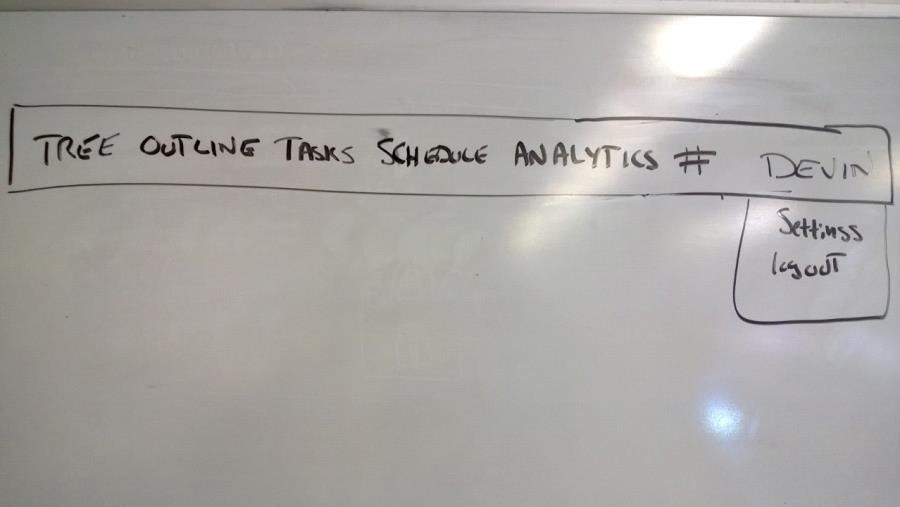 TREE OUTLINE TASKS SCHEDULE ANALYTICS # DEVIN
Settings
logout